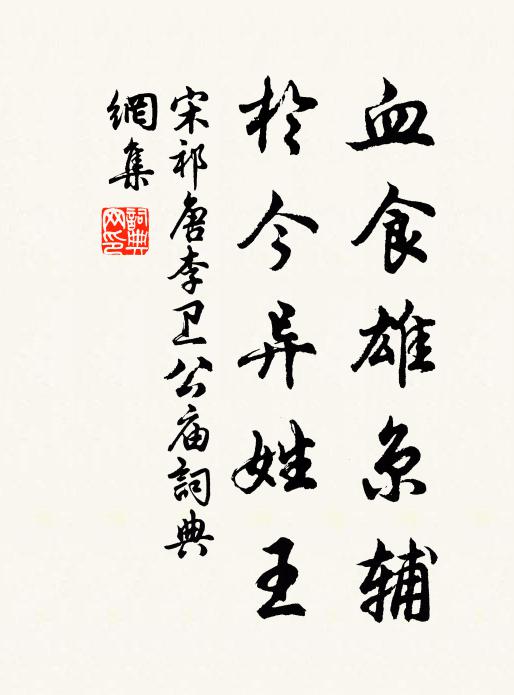 血食雄京辅
於今异姓王
宋祁唐李卫公庙詞典
網集
詞典网印